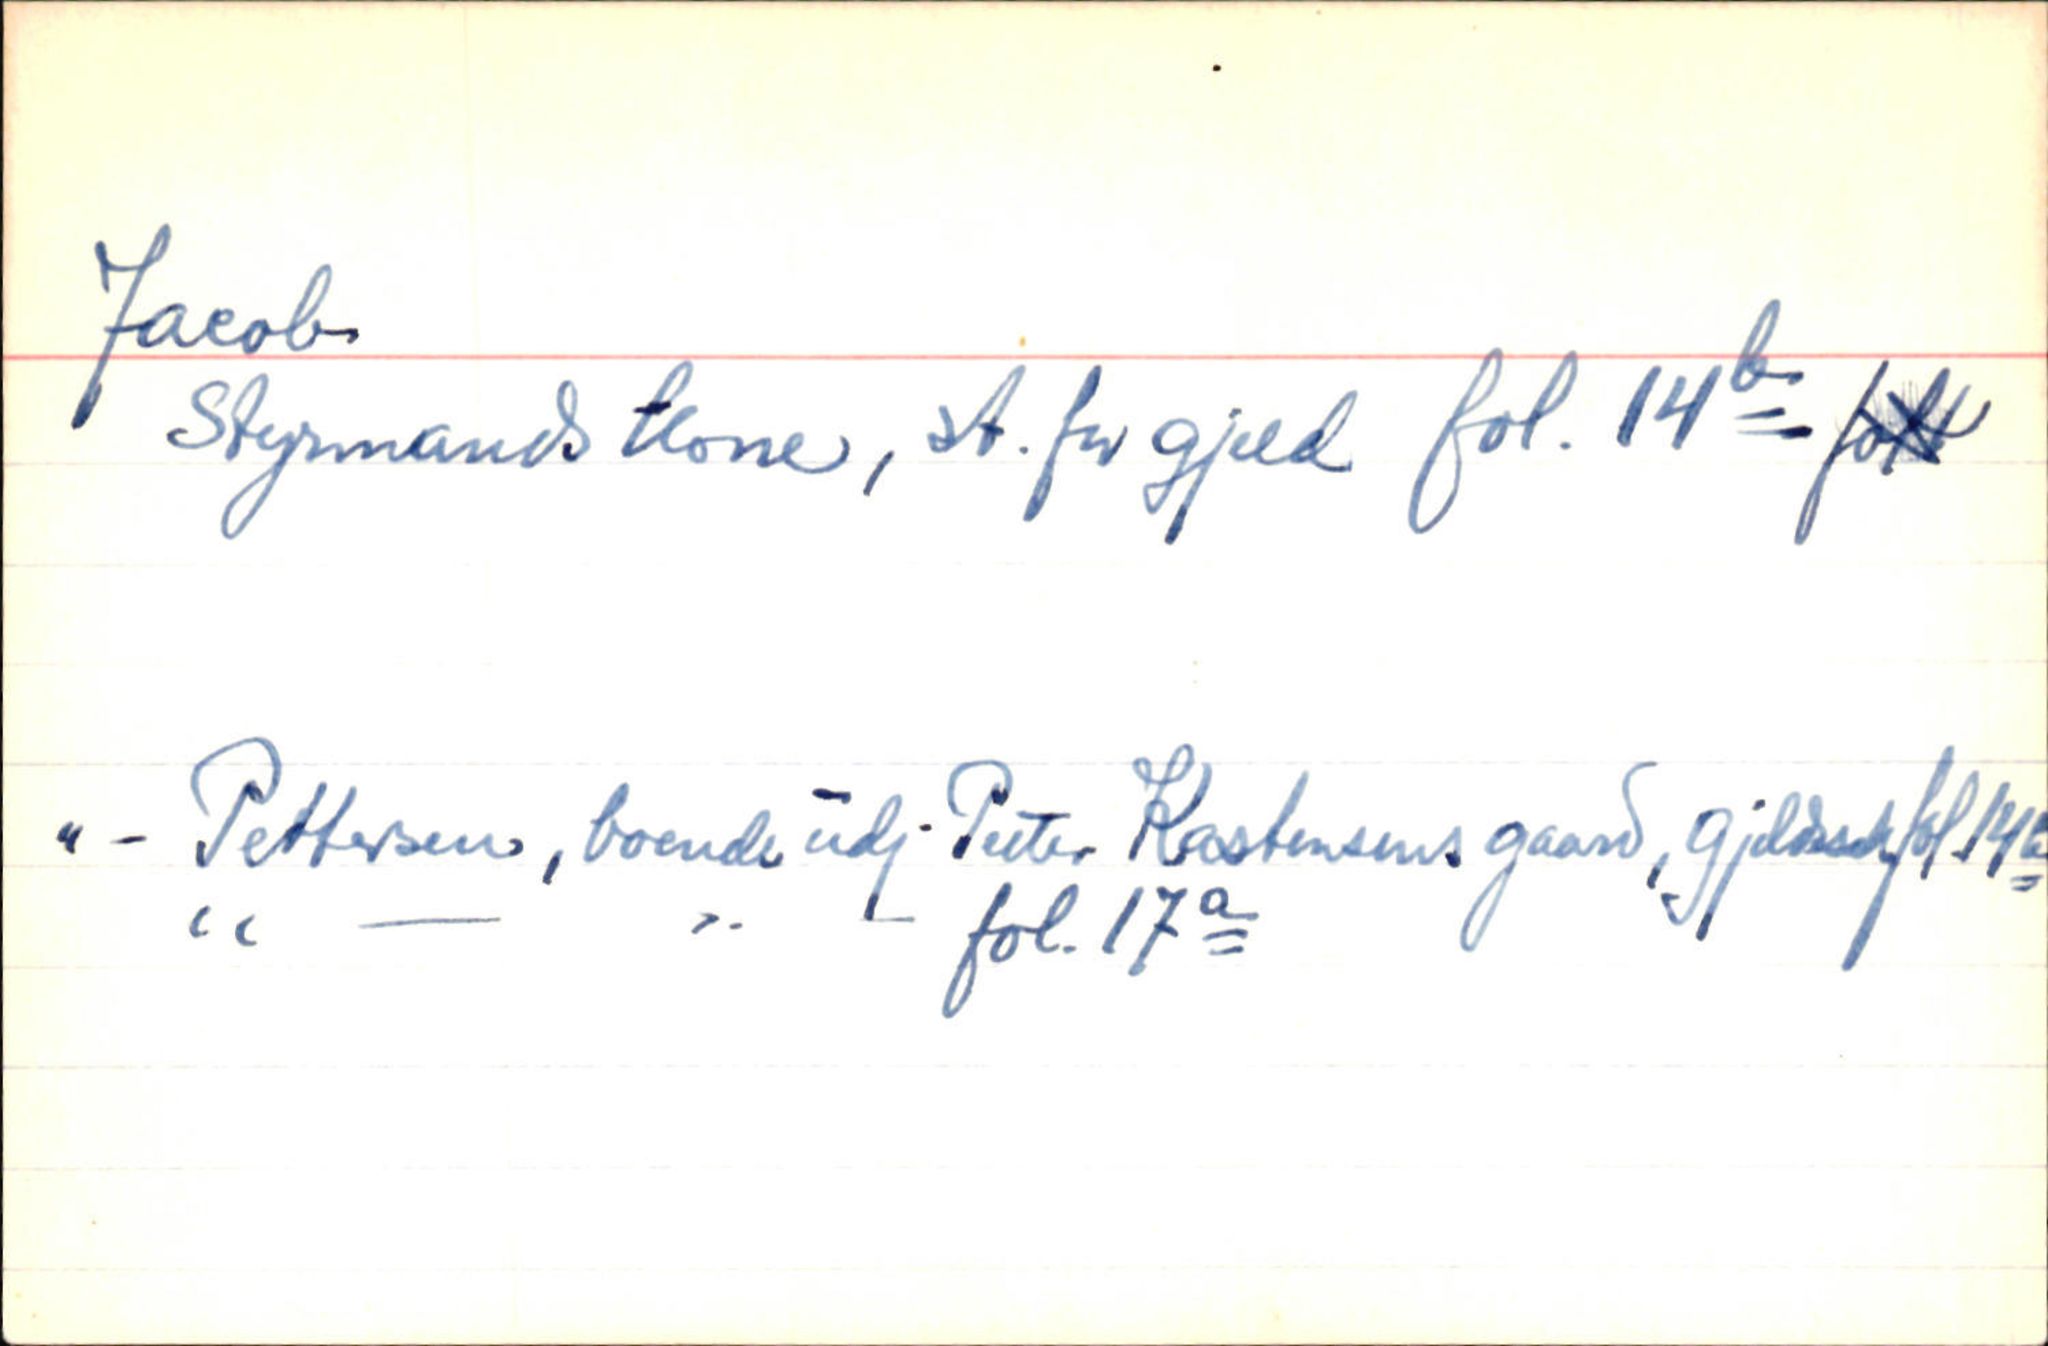 Jacob
Styrmands Kone, st. for gjeld fol. 14b
" - Pettersen, boende udj Peter Kastensens gaard, gjeldssag fol. 14b
" — " — fol. 17a